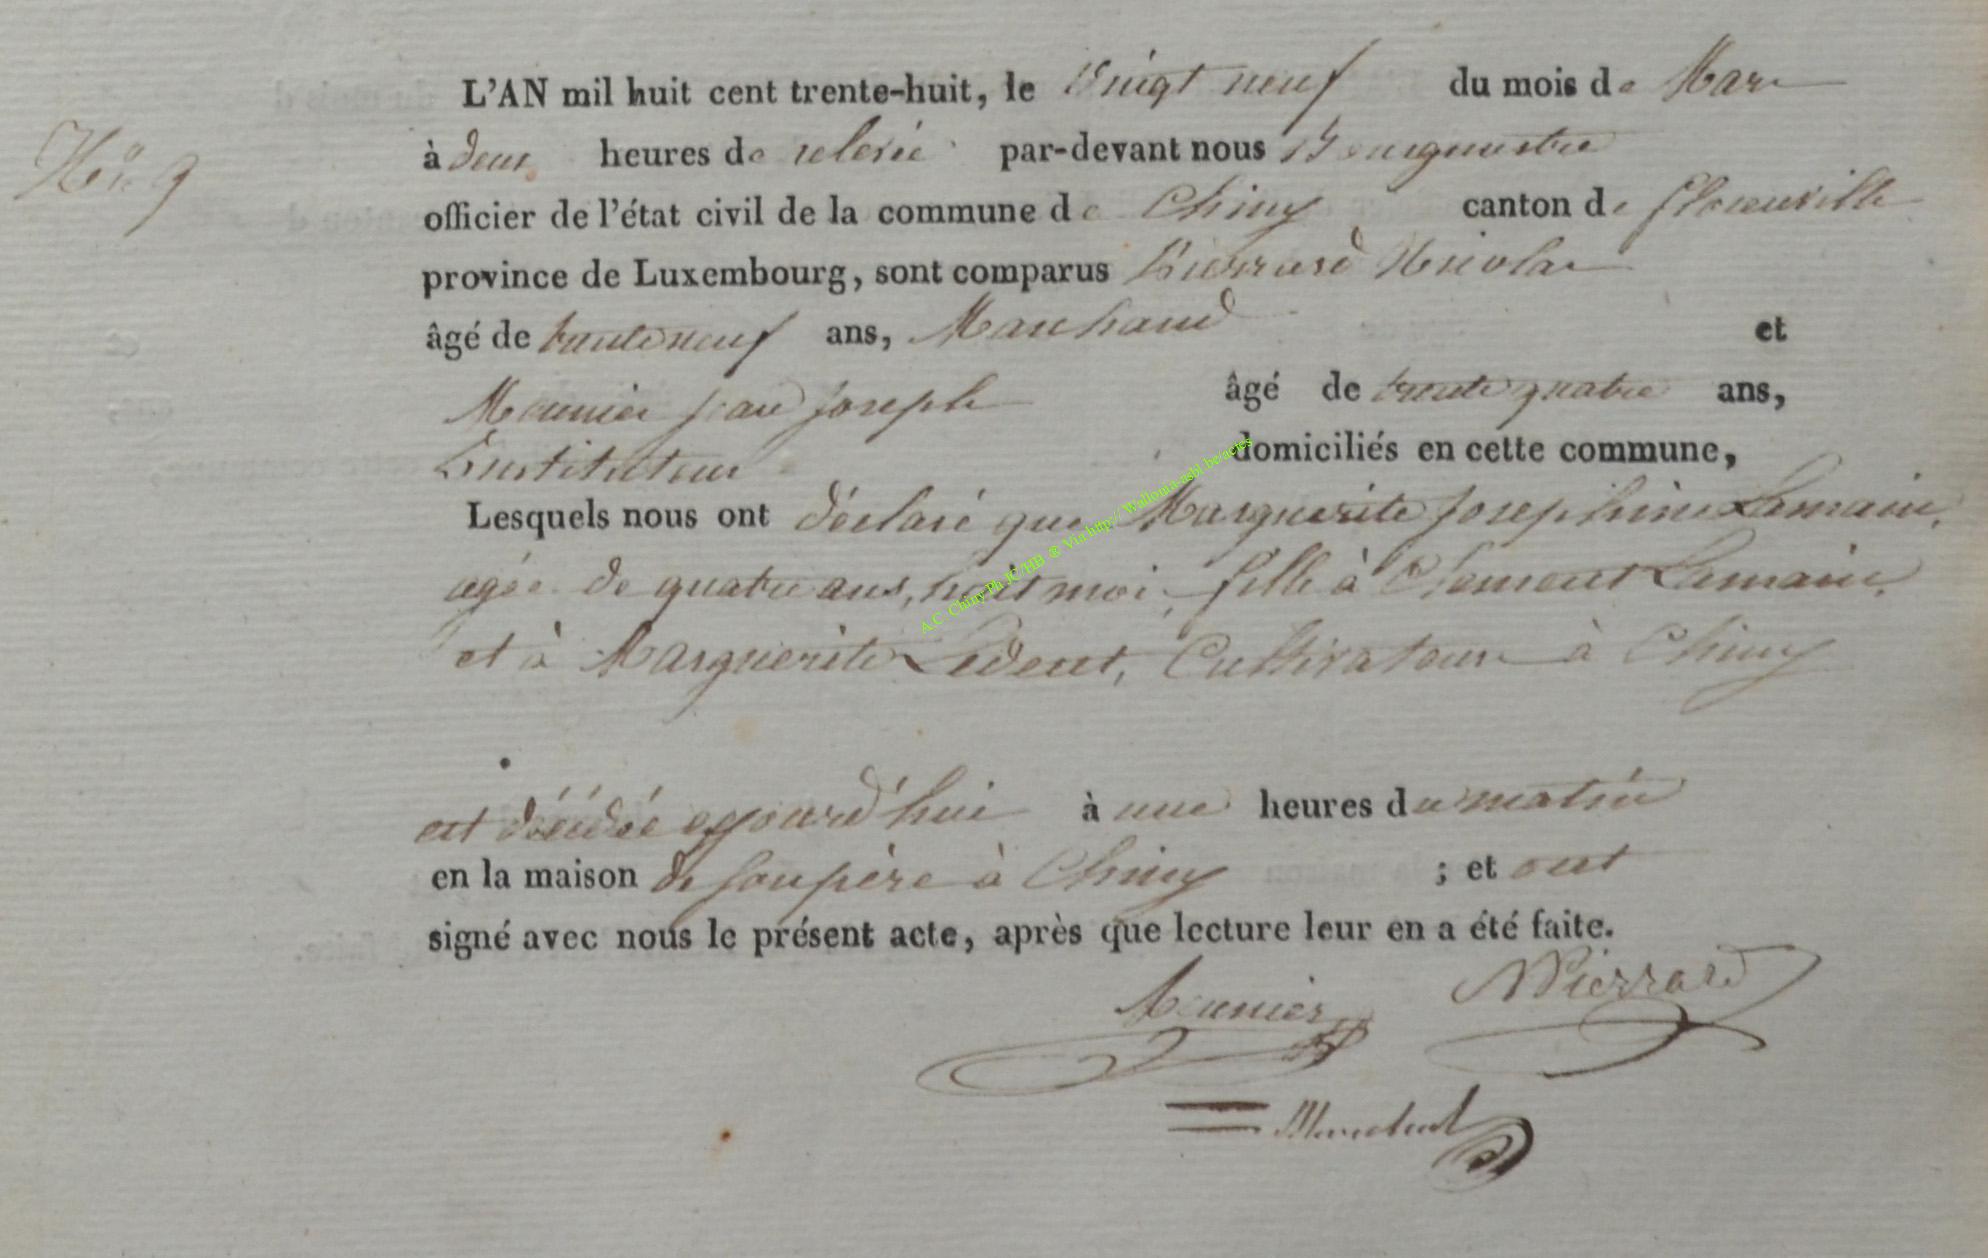 L'AN mil huit cent trente-huit, le vingt neuf du mois de Mars
N.º 9
à deux heures de relevée par-devant nous Bourgmestre
officier de l'état civil de la commune de Chiny canton de florenville
province de Luxembourg, sont comparus Pierrard Nicolas
âgé de trente neuf ans, Marchand et
Meunier jean joseph âgé de trente quatre ans,
Instituteur domiciliés en cette commune,
Lesquels nous ont déclaré que Marguerite josephine Lamain,
agée de quatre ans, huit moi, fille à Clement Lamain,
et à Marguerite Ledent, Cultivateurs à Chiny
est décédée ajourd'hui à une heures du matin
en la maison de son père à Chiny ; et ont
signé avec nous le présent acte, après que lecture leur en a été faite.
Meunier NPierrard
A.C. Chiny Ph JC/HB ® Via http://Wallonia-asbl.be/actes